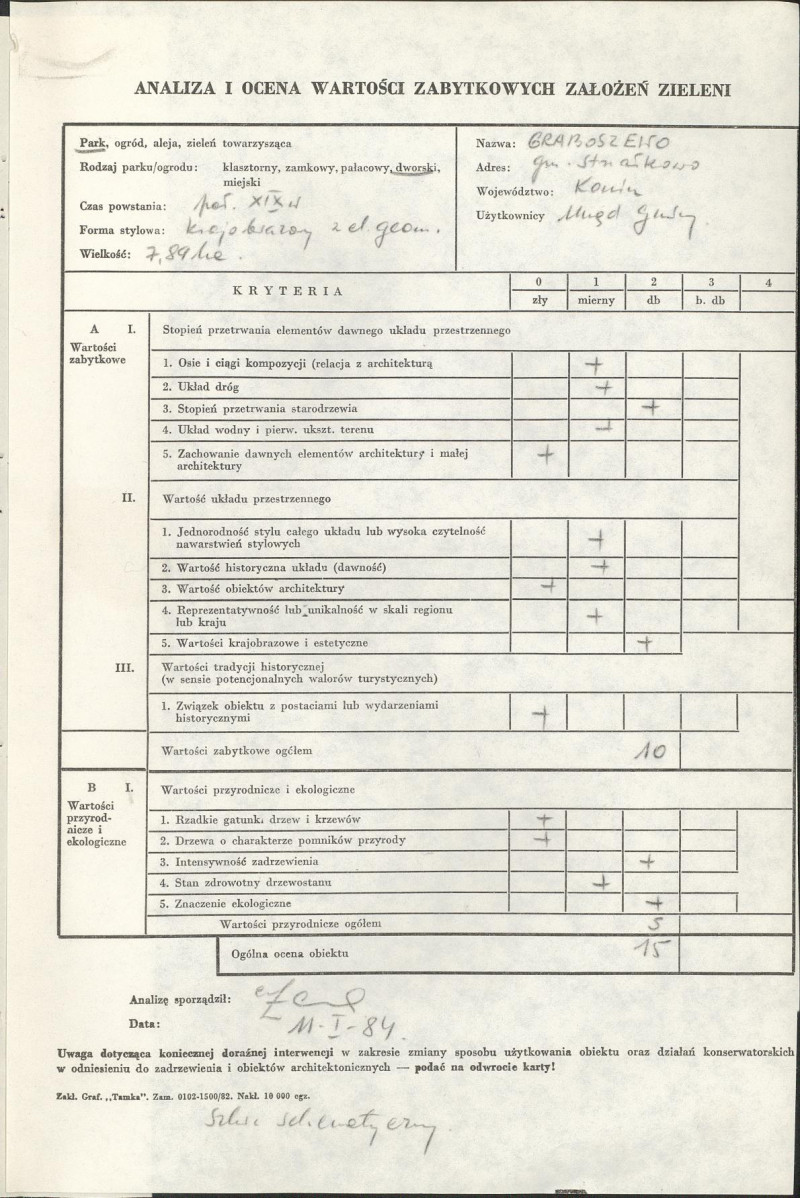 ANALIZA I OCENA WARTOŚCI ZABYTKOWYCH ZAŁOŻEŃ ZIELENI
Park, ogród, aleja, zieleń towarzysząca
Rodzaj parku/ogrodu: klasztorny, zamkowy, pałacowy, dworski,
miejski
Czas powstania: poł. XIX w
Forma stylowa: krajobrazowy z el. geom.
Wielkość: 7,89 ha.
Nazwa: GRABOSZEWO
Adres: gm. Strzałkowo
Województwo: Konin
Użytkownicy Urząd Gminy
KRYTERIA
0 1 2 3 4
zły mierny db b. db
A I. Stopień przetrwania elementów dawnego układu przestrzennego
Wartości
zabytkowe
1. Osie i ciągi kompozycji (relacja z architekturą +
2. Układ dróg +
3. Stopień przetrwania starodrzewia +
4. Układ wodny i pierw. ukszt. terenu +
5. Zachowanie dawnych elementów architektury i małej
architektury +
II. Wartość układu przestrzennego
1. Jednorodność stylu całego układu lub wysoka czytelność
nawarstwień stylowych +
2. Wartość historyczna układu (dawność) +
3. Wartość obiektów architektury +
4. Reprezentatywność lub unikalność w skali regionu
lub kraju +
5. Wartości krajobrazowe i estetyczne +
III. Wartości tradycji historycznej
(w sensie potencjonalnych walorów turystycznych)
1. Związek obiektu z postaciami lub wydarzeniami
historycznymi +
Wartości zabytkowe ogółem 10
B I. Wartości przyrodnicze i ekologiczne
Wartości
przyrod-
nicze i
ekologiczne
1. Rzadkie gatunki drzew i krzewów +
2. Drzewa o charakterze pomników przyrody +
3. Intensywność zadrzewienia +
4. Stan zdrowotny drzewostanu +
5. Znaczenie ekologiczne +
Wartości przyrodnicze ogółem 5
Ogólna ocena obiektu 15
Analizę sporządził:
Data: 11-I-84.
Uwaga dotycząca koniecznej doraźnej interwencji w zakresie zmiany sposobu użytkowania obiektu oraz działań konserwatorskich
w odniesieniu do zadrzewienia i obiektów architektonicznych — podać na odwrocie karty!
Zakł. Graf. „Tamka". Zam. 0102-1500/82. Nakł. 10 000 egz.
Szkic schematyczny.